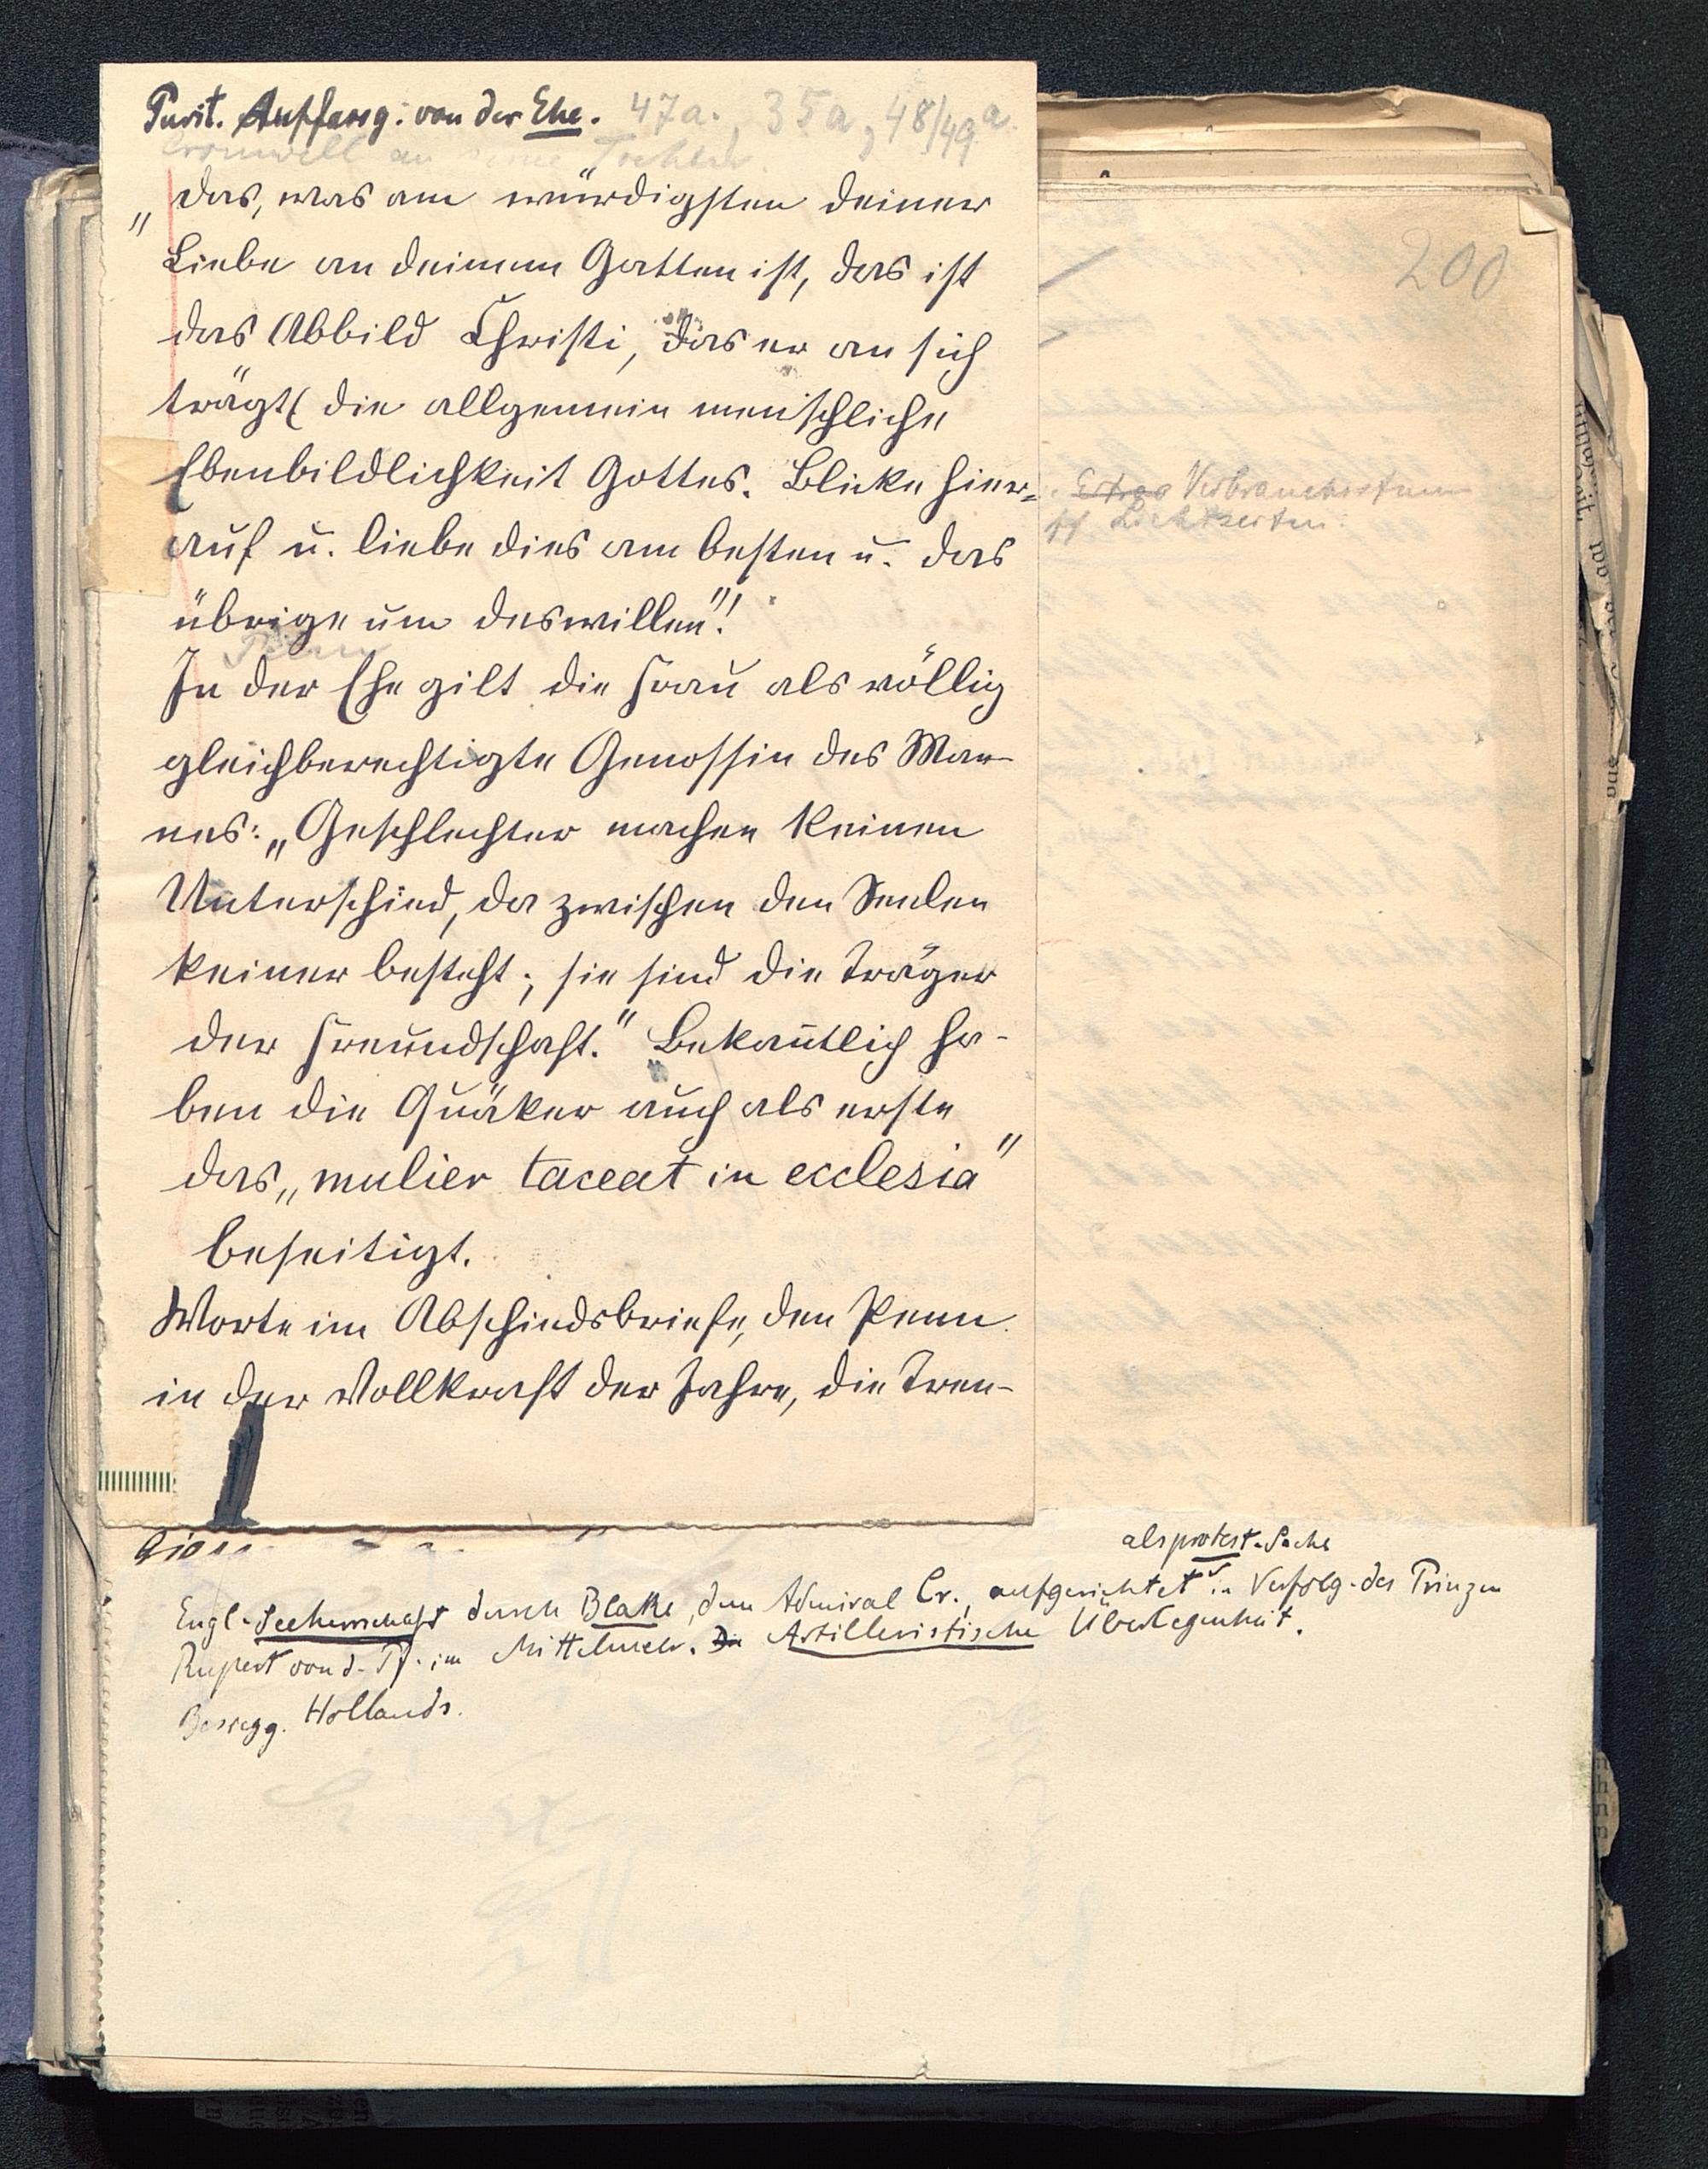 Purit. Auffassg. von der Ehe. 47a., 35a, 48/49a.
Cromwell an seine Tochter
„Das, was am würdigsten deiner
Liebe an deinem Gatten ist, das ist
das Abbild Christi, das er an sich
trägt (die allgemein menschliche
Ebenbildlichkeit Gottes. Blicke hier-
auf u. liebe dies am besten u. das
übrige um deswillen"!
Penn
In der Ehe gilt die Frau als völlig
gleichberechtigte Genossin des Man-
nes: „Geschlechter machen keinen
Unterschied, da zwischen den Seelen
keiner besteht; sie sind die Träger
der Freundschaft." Bekantlich ha-
ben die Quäker auch als erste
das „mulier taceat in ecclesia"
beseitigt.
Worte im Abschiedsbriefe, den Penn
in der Vollkraft der Jahre, die Tren-
200
Verbrauchersteuern
als protest. Sache
Engl. Seeherrschaft durch Blake, dem Admiral Cr., aufgerichtet in Verfolg. des Prinzen
Rupert von d. Pf. im Mittelmeer. Die Artilleristische Überlegenheit.
Besiegg. Hollands.